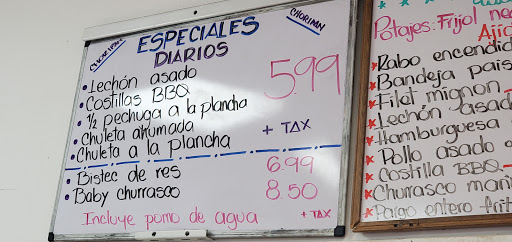 ESPECIALES
DIARIOS
CHORIPAN
• Lechón asado
• Costillas BBQ
• 1/2 pechuga a la plancha
• Chuleta ahumada
• Chuleta a la plancha
5.99
+ TAX
• Bistec de res 6.99
• Baby churrasco 8.50
Incluye pomo de agua + TAX
Potajes: Frijol ne
Ajic
Rabo encendid
Bandeja pais
Filet mignon
Lechón asad
Hamburguesa
Pollo asado
Costilla BBQ
Churrasco mari
Pargo entero frit